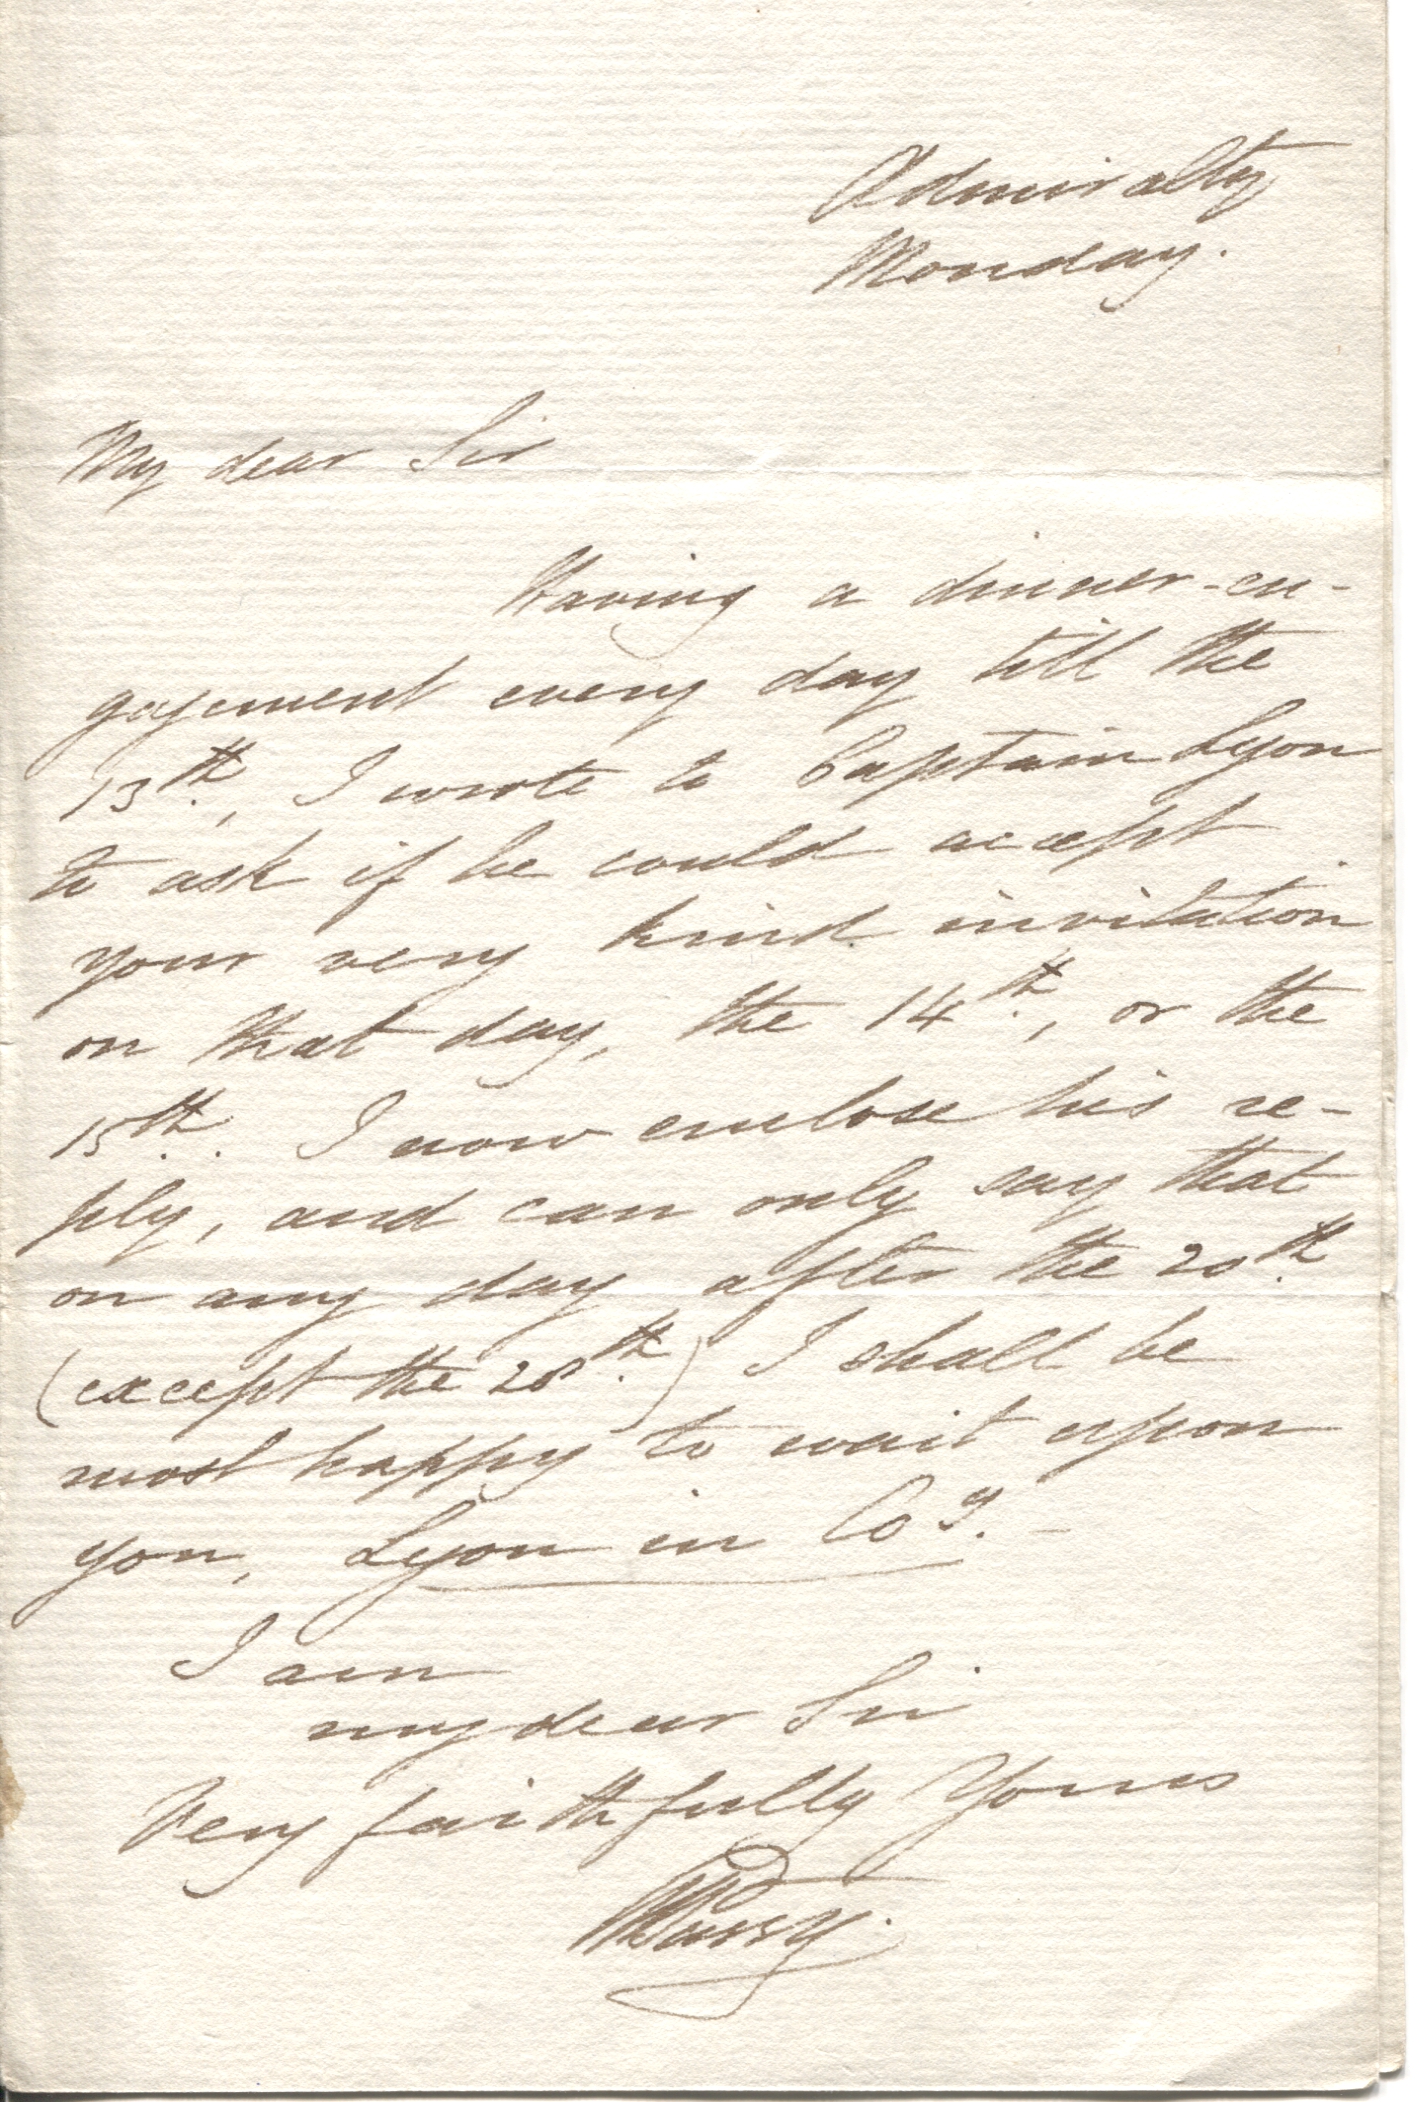 Admiralty
Monday.
My dear Sir
Having a dinner-en-
gagement every day till the
13th., I wrote to Captain Lyon
to ask if he could accept
your very kind invitation
on that day, the 14th., or the
15th. I now enclose his re-
ply, and can only say that
on any day after the 20th.
(except the 28th.) I shall be
most happy to wait upon
you, Lyon in Coy. -
I am
my dear Sir
Very faithfully Yours
WEParry.